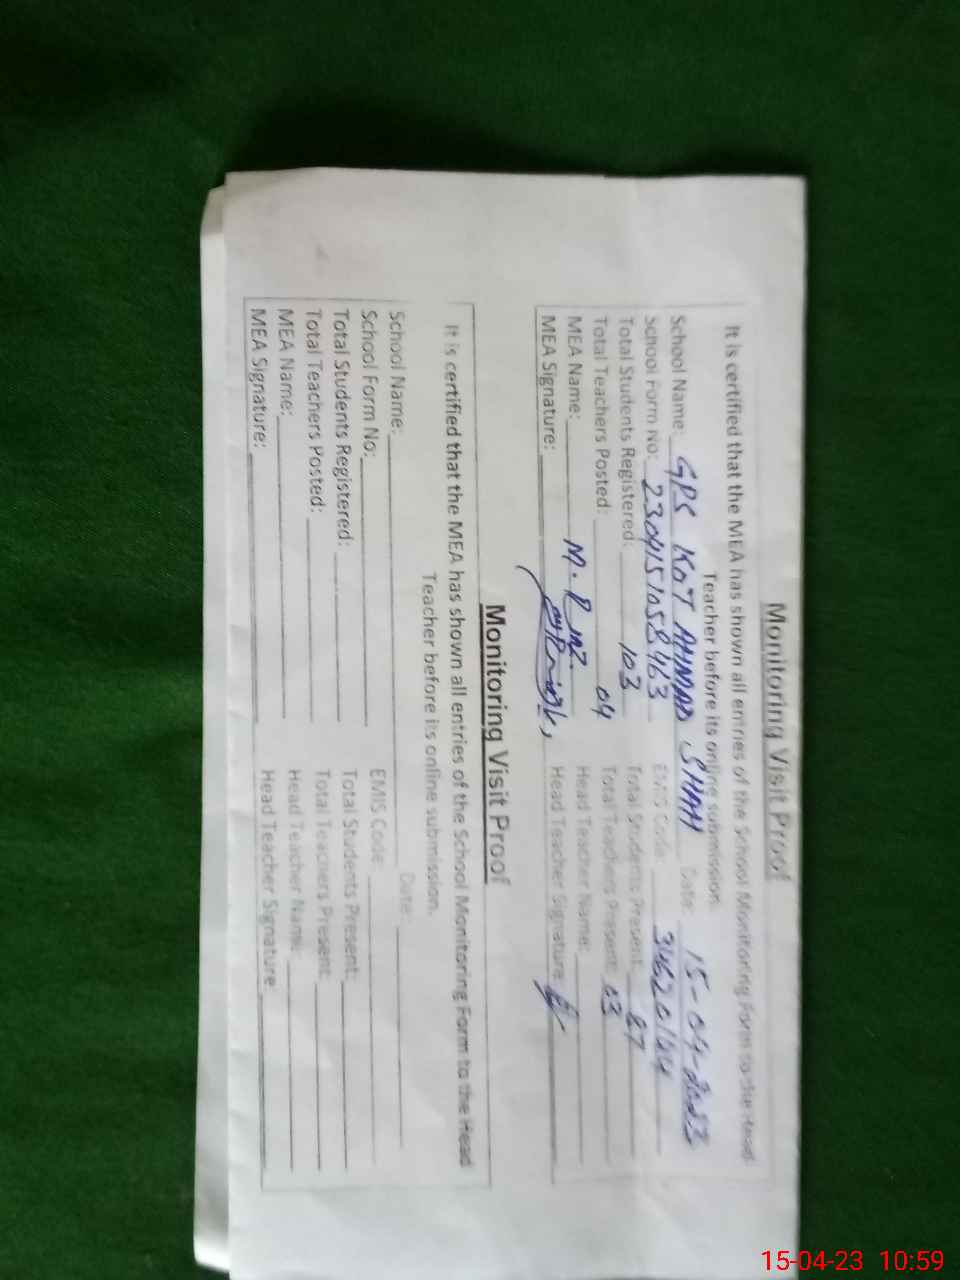 Monitoring Visit Proof
It is certified that the MEA has shown all entries of the School Monitoring Form to the Head
Teacher before its online submission.
School Name: GPS KOT AHMAD SHAH Date: 15-04-2023
School Form No: 2304151058463 EMIS Code: 34620144
Total Students Registered: 103 Total Students Present: 87
Total Teachers Posted: 04 Total Teachers Present: 03
MEA Name: M. Head Teacher Name:
MEA Signature: Head Teacher Signature:
Monitoring Visit Proof
It is certified that the MEA has shown all entries of the School Monitoring Form to the Head
Teacher before its online submission.
School Name: Date:
School Form No: EMIS Code:
Total Students Registered: Total Students Present:
Total Teachers Posted: Total Teachers Present:
MEA Name: Head Teacher Name:
MEA Signature: Head Teacher Signature:
15-04-23 10:59